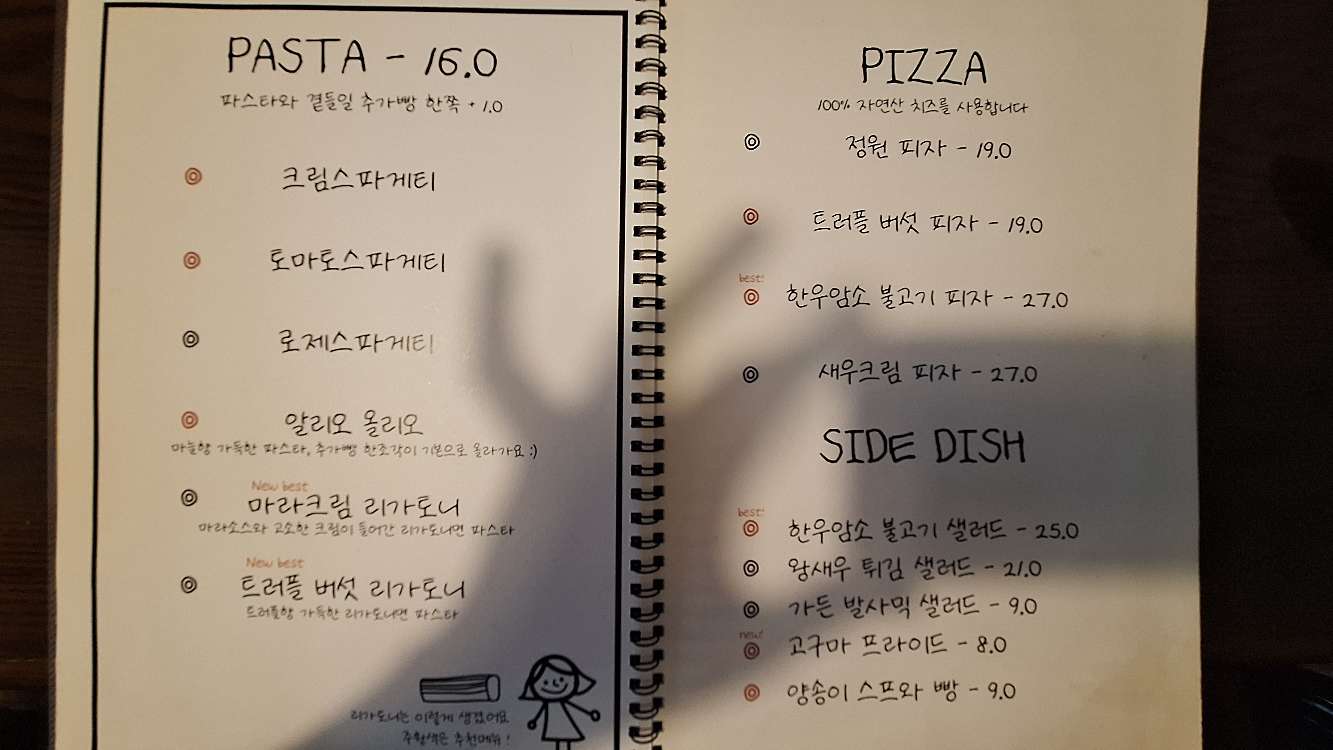 PASTA - 16.0
파스타와 곁들일 추가빵 한쪽 + 1.0
크림스파게티
토마토스파게티
로제스파게티
알리오 올리오
마늘향 가득한 파스타, 추가빵 한조각이 기본으로 올라가요 :)
New best
마라크림 리가토니
마라소스와 고소한 크림이 들어간 리가토니면 파스타
New best
트러플 버섯 리가토니
트러플향 가득한 리가토니면 파스타
리가토니는 이렇게 생겼어요
주황색은 추천메뉴!
PIZZA
100% 자연산 치즈를 사용합니다
정원 피자 - 19.0
트러플 버섯 피자 - 19.0
best!
한우암소 불고기 피자 - 27.0
새우크림 피자 - 27.0
SIDE DISH
best!
한우암소 불고기 샐러드 - 25.0
왕새우 튀김 샐러드 - 21.0
가든 발사믹 샐러드 - 9.0
new!
고구마 프라이드 - 8.0
양송이 스프와 빵 - 9.0